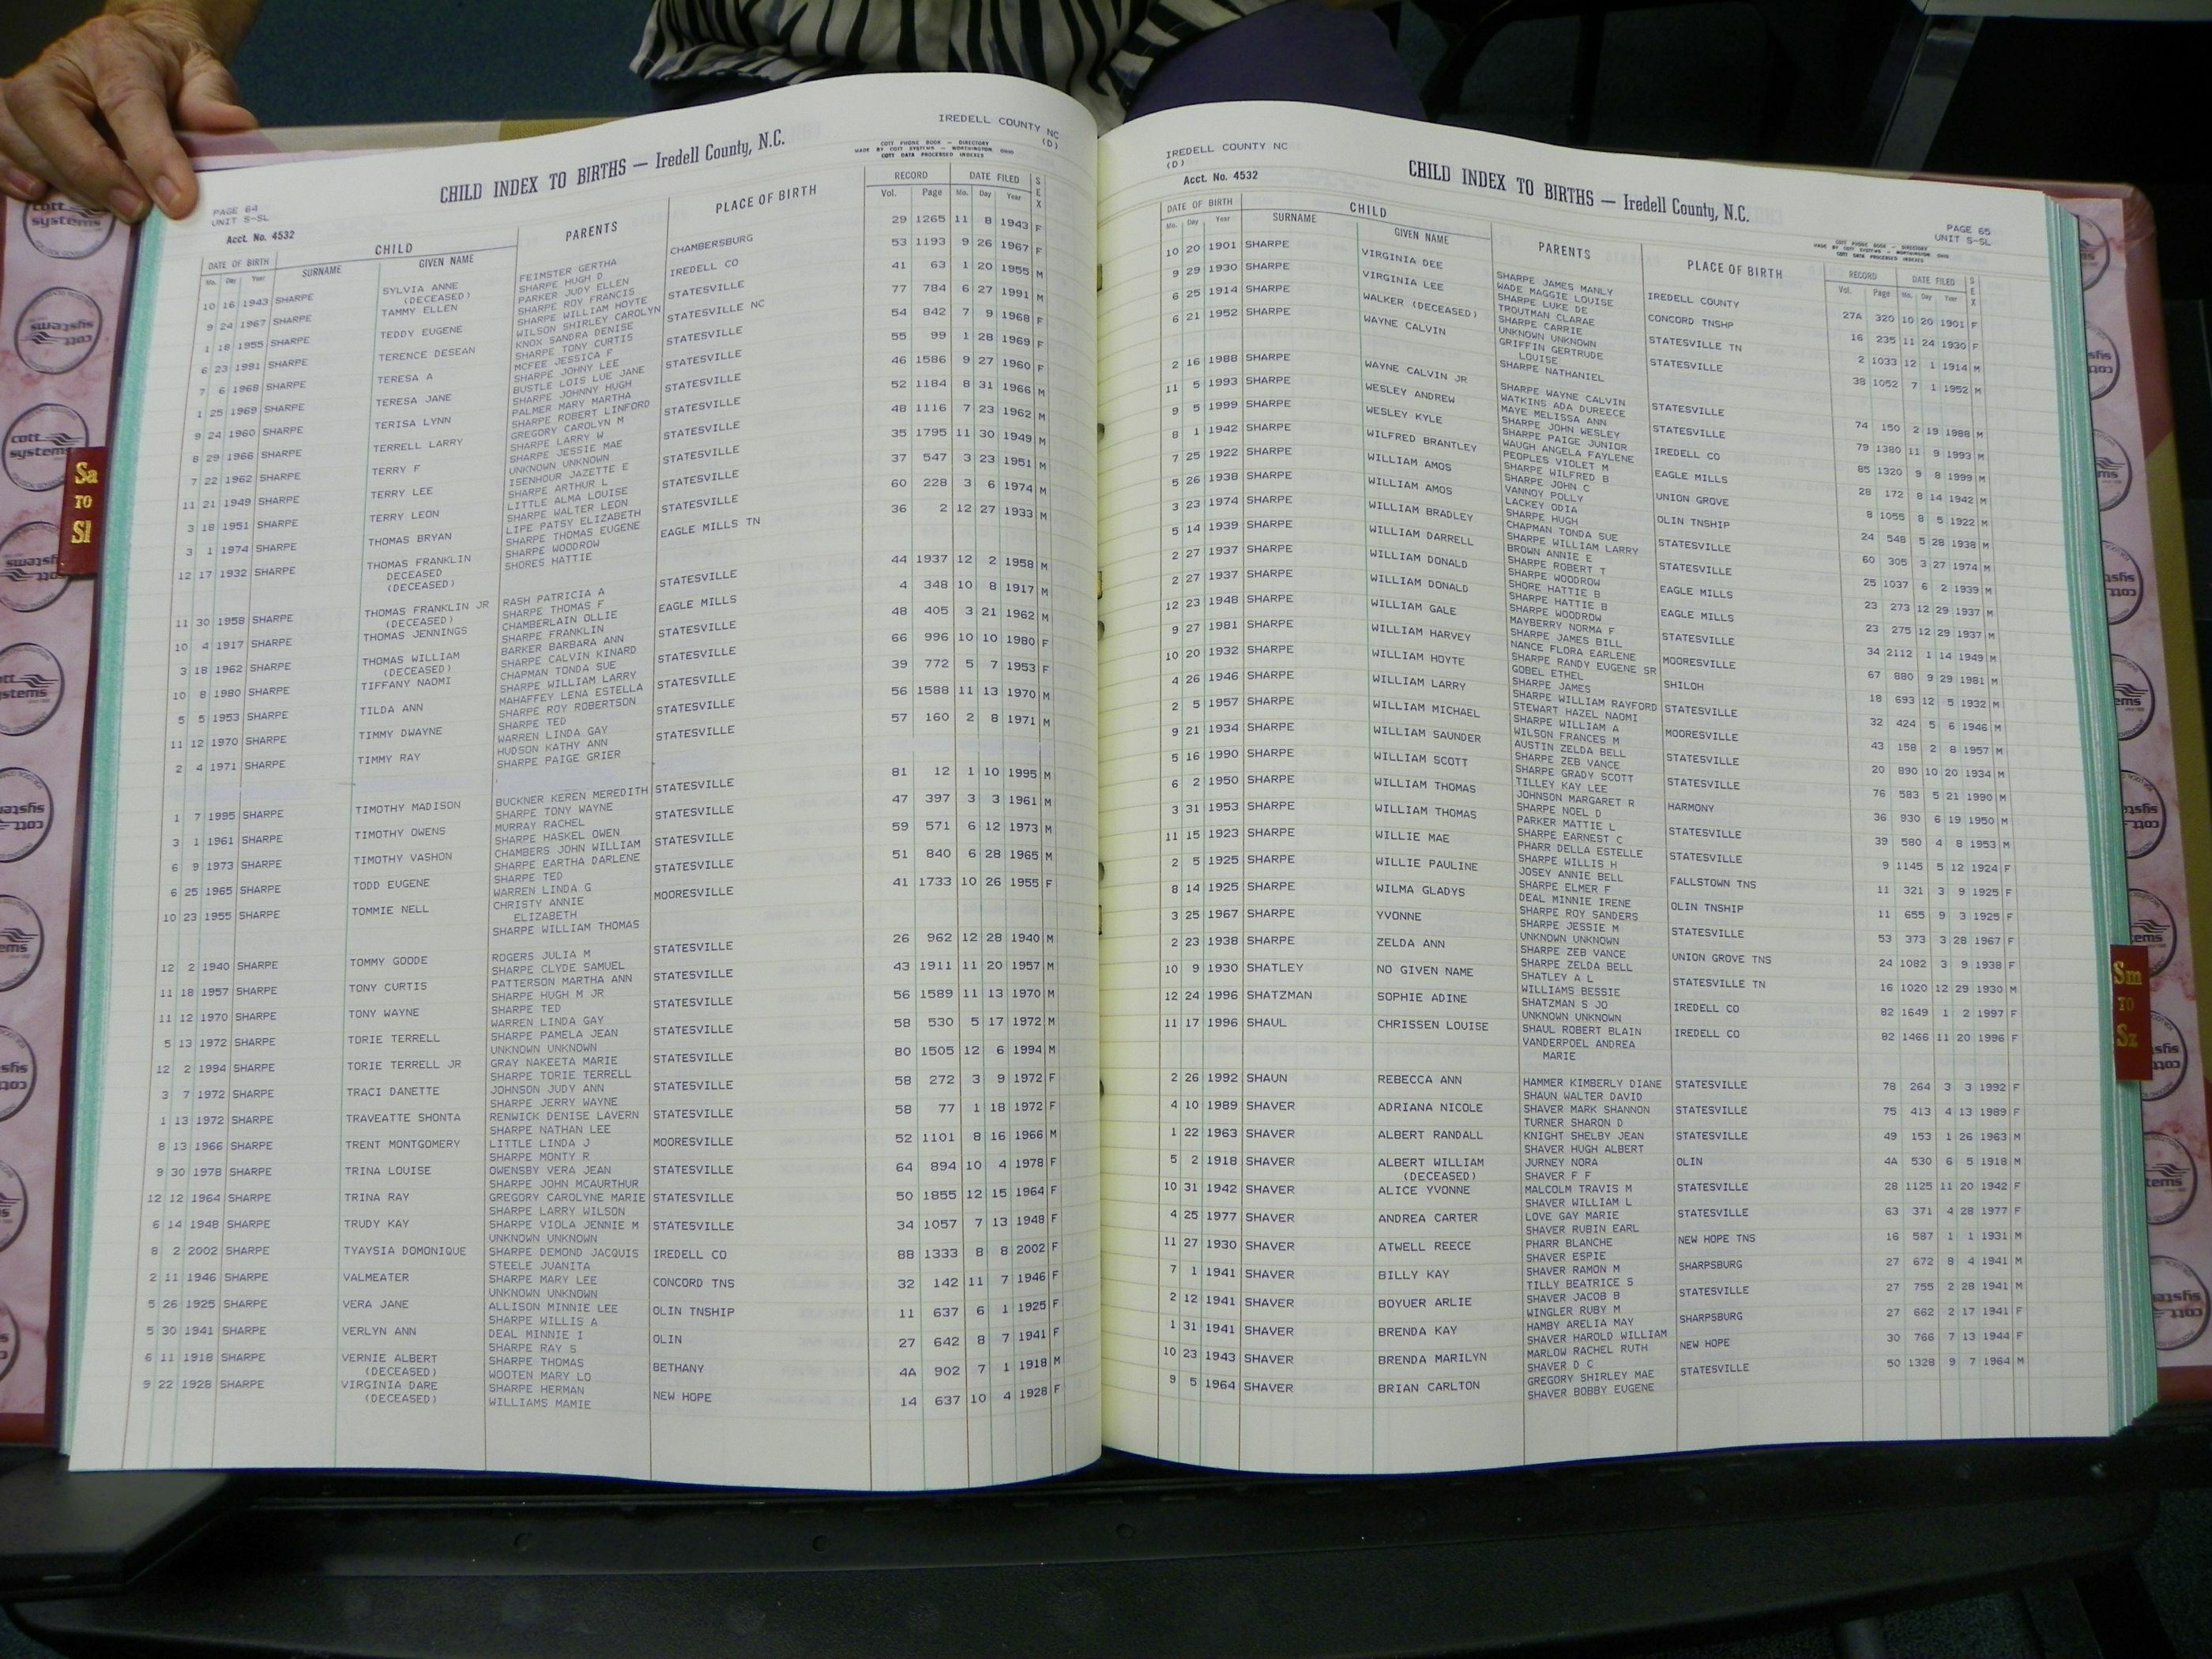 IREDELL COUNTY NC
(D)
CHILD INDEX TO BIRTHS — Iredell County, N.C.
COTT PHONE BOOK - DIRECTORY
MADE BY COTT SYSTEMS - WORTHINGTON, OHIO
COTT DATA PROCESSED INDEXES
PAGE 64
UNIT S-SL
Acct. No. 4532
DATE OF BIRTH CHILD PARENTS PLACE OF BIRTH RECORD DATE FILED SEX
Mo. Day Year SURNAME GIVEN NAME Vol. Page Mo. Day Year
10 16 1943 SHARPE SYLVIA ANNE FEIMSTER GERTHA CHAMBERSBURG 29 1265 11 8 1943 F
(DECEASED) SHARPE HUGH D
9 24 1967 SHARPE TAMMY ELLEN PARKER JUDY ELLEN IREDELL CO 53 1193 9 26 1967 F
SHARPE ROY FRANCIS
1 18 1955 SHARPE TEDDY EUGENE SHARPE WILLIAM HOYTE STATESVILLE 41 63 1 20 1955 M
WILSON SHIRLEY CAROLYN
6 23 1991 SHARPE TERENCE DESEAN KNOX SANDRA DENISE STATESVILLE NC 77 784 6 27 1991 M
SHARPE TONY CURTIS
7 6 1968 SHARPE TERESA A MCFEE JESSICA F STATESVILLE 54 842 7 9 1968 F
SHARPE JOHNY LEE
1 25 1969 SHARPE TERESA JANE BUSTLE LOIS LUE JANE STATESVILLE 55 99 1 28 1969 F
SHARPE JOHNNY HUGH
9 24 1960 SHARPE TERISA LYNN PALMER MARY MARTHA STATESVILLE 46 1586 9 27 1960 F
SHARPE ROBERT LINFORD
8 29 1966 SHARPE TERRELL LARRY GREGORY CAROLYN M STATESVILLE 52 1184 8 31 1966 M
SHARPE LARRY W
7 22 1962 SHARPE TERRY F SHARPE JESSIE MAE STATESVILLE 48 1116 7 23 1962 M
UNKNOWN UNKNOWN
11 21 1949 SHARPE TERRY LEE ISENHOUR JAZETTE E STATESVILLE 35 1795 11 30 1949 M
SHARPE ARTHUR L
3 18 1951 SHARPE TERRY LEON LITTLE ALMA LOUISE STATESVILLE 37 547 3 23 1951 M
SHARPE WALTER LEON
3 1 1974 SHARPE THOMAS BRYAN LIPE PATSY ELIZABETH STATESVILLE 60 228 3 6 1974 M
SHARPE THOMAS EUGENE
12 17 1932 SHARPE THOMAS FRANKLIN SHARPE WOODROW EAGLE MILLS TN 36 2 12 27 1933 M
DECEASED SHORES HATTIE
(DECEASED)
11 30 1958 SHARPE THOMAS FRANKLIN JR RASH PATRICIA A STATESVILLE 44 1937 12 2 1958 M
(DECEASED) SHARPE THOMAS F
10 4 1917 SHARPE THOMAS JENNINGS CHAMBERLAIN OLLIE EAGLE MILLS 4 348 10 8 1917 M
SHARPE FRANKLIN
3 18 1962 SHARPE THOMAS WILLIAM BARKER BARBARA ANN STATESVILLE 48 405 3 21 1962 M
(DECEASED) SHARPE CALVIN KINARD
10 8 1980 SHARPE TIFFANY NAOMI CHAPMAN TONDA SUE STATESVILLE 66 996 10 10 1980 F
SHARPE WILLIAM LARRY
5 5 1953 SHARPE TILDA ANN MAHAFFEY LENA ESTELLA STATESVILLE 39 772 5 7 1953 F
SHARPE ROY ROBERTSON
11 12 1970 SHARPE TIMMY DWAYNE SHARPE TED STATESVILLE 56 1588 11 13 1970 M
WARREN LINDA GAY
2 4 1971 SHARPE TIMMY RAY HUDSON KATHY ANN STATESVILLE 57 160 2 8 1971 M
SHARPE PAIGE GRIER
1 7 1995 SHARPE TIMOTHY MADISON BUCKNER KEREN MEREDITH STATESVILLE 81 12 1 10 1995 M
SHARPE TONY WAYNE
3 1 1961 SHARPE TIMOTHY OWENS MURRAY RACHEL STATESVILLE 47 397 3 3 1961 M
SHARPE HASKEL OWEN
6 9 1973 SHARPE TIMOTHY VASHON CHAMBERS JOHN WILLIAM STATESVILLE 59 571 6 12 1973 M
SHARPE EARTHA DARLENE
6 25 1965 SHARPE TODD EUGENE SHARPE TED STATESVILLE 51 840 6 28 1965 M
WARREN LINDA G
10 23 1955 SHARPE TOMMIE NELL CHRISTY ANNIE MOORESVILLE 41 1733 10 26 1955 F
ELIZABETH
SHARPE WILLIAM THOMAS
12 2 1940 SHARPE TOMMY GOODE ROGERS JULIA M STATESVILLE 26 962 12 28 1940 M
SHARPE CLYDE SAMUEL
11 18 1957 SHARPE TONY CURTIS PATTERSON MARTHA ANN STATESVILLE 43 1911 11 20 1957 M
SHARPE HUGH M JR
11 12 1970 SHARPE TONY WAYNE SHARPE TED STATESVILLE 56 1589 11 13 1970 M
WARREN LINDA GAY
5 13 1972 SHARPE TORIE TERRELL SHARPE PAMELA JEAN STATESVILLE 58 530 5 17 1972 M
UNKNOWN UNKNOWN
12 2 1994 SHARPE TORIE TERRELL JR GRAY NAKEETA MARIE STATESVILLE 80 1505 12 6 1994 M
SHARPE TORIE TERRELL
3 7 1972 SHARPE TRACI DANETTE JOHNSON JUDY ANN STATESVILLE 58 272 3 9 1972 F
SHARPE JERRY WAYNE
1 13 1972 SHARPE TRAVEATTE SHONTA RENWICK DENISE LAVERN STATESVILLE 58 77 1 18 1972 F
SHARPE NATHAN LEE
8 13 1966 SHARPE TRENT MONTGOMERY LITTLE LINDA J MOORESVILLE 52 1101 8 16 1966 M
SHARPE MONTY R
9 30 1978 SHARPE TRINA LOUISE OWENSBY VERA JEAN STATESVILLE 64 894 10 4 1978 F
SHARPE JOHN MCAURTHUR
12 12 1964 SHARPE TRINA RAY GREGORY CAROLYNE MARIE STATESVILLE 50 1855 12 15 1964 F
SHARPE LARRY WILSON
6 14 1948 SHARPE TRUDY KAY SHARPE VIOLA JENNIE M STATESVILLE 34 1057 7 13 1948 F
UNKNOWN UNKNOWN
8 2 2002 SHARPE TYAYSIA DOMONIQUE SHARPE DEMOND JACQUIS IREDELL CO 88 1333 8 8 2002 F
STEELE JUANITA
2 11 1946 SHARPE VALMEATER SHARPE MARY LEE CONCORD TNS 32 142 11 7 1946 F
UNKNOWN UNKNOWN
5 26 1925 SHARPE VERA JANE ALLISON MINNIE LEE OLIN TNSHIP 11 637 6 1 1925 F
SHARPE WILLIS A
5 30 1941 SHARPE VERLYN ANN DEAL MINNIE I OLIN 27 642 8 7 1941 F
SHARPE RAY S
6 11 1918 SHARPE VERNIE ALBERT SHARPE THOMAS BETHANY 4A 902 7 1 1918 M
(DECEASED) WOOTEN MARY LO
9 22 1928 SHARPE VIRGINIA DARE SHARPE HERMAN NEW HOPE 14 637 10 4 1928 F
(DECEASED) WILLIAMS MAMIE
IREDELL COUNTY NC
(D)
Acct. No. 4532
CHILD INDEX TO BIRTHS — Iredell County, N.C.
PAGE 65
UNIT S-SL
COTT PHONE BOOK - DIRECTORY
MADE BY COTT SYSTEMS - WORTHINGTON, OHIO
COTT DATA PROCESSED INDEXES
DATE OF BIRTH CHILD PARENTS PLACE OF BIRTH RECORD DATE FILED SEX
Mo. Day Year SURNAME GIVEN NAME Vol. Page Mo. Day Year
10 20 1901 SHARPE VIRGINIA DEE SHARPE JAMES MANLY IREDELL COUNTY 27A 320 10 20 1901 F
WADE MAGGIE LOUISE
9 29 1930 SHARPE VIRGINIA LEE SHARPE LUKE DE CONCORD TNSHP 16 235 11 24 1930 F
TROUTMAN CLARAE
6 25 1914 SHARPE WALKER (DECEASED) SHARPE CARRIE STATESVILLE TN 2 1033 12 1 1914 M
UNKNOWN UNKNOWN
6 21 1952 SHARPE WAYNE CALVIN GRIFFIN GERTRUDE STATESVILLE 38 1052 7 1 1952 M
LOUISE
SHARPE NATHANIEL
2 16 1988 SHARPE WAYNE CALVIN JR SHARPE WAYNE CALVIN STATESVILLE 74 150 2 19 1988 M
WATKINS ADA DUREECE
11 5 1993 SHARPE WESLEY ANDREW MAYE MELISSA ANN STATESVILLE 79 1380 11 9 1993 M
SHARPE JOHN WESLEY
9 5 1999 SHARPE WESLEY KYLE SHARPE PAIGE JUNIOR IREDELL CO 85 1320 9 8 1999 M
WAUGH ANGELA FAYLENE
8 1 1942 SHARPE WILFRED BRANTLEY PEOPLES VIOLET M EAGLE MILLS 28 172 8 14 1942 M
SHARPE WILFRED B
7 25 1922 SHARPE WILLIAM AMOS SHARPE JOHN C UNION GROVE 8 1055 8 5 1922 M
VANNOY POLLY
5 26 1938 SHARPE WILLIAM AMOS LACKEY ODIA OLIN TNSHIP 24 548 5 28 1938 M
SHARPE HUGH
3 23 1974 SHARPE WILLIAM BRADLEY CHAPMAN TONDA SUE STATESVILLE 60 305 3 27 1974 M
SHARPE WILLIAM LARRY
5 14 1939 SHARPE WILLIAM DARRELL BROWN ANNIE E STATESVILLE 25 1037 6 2 1939 M
SHARPE ROBERT T
2 27 1937 SHARPE WILLIAM DONALD SHARPE WOODROW EAGLE MILLS 23 273 12 29 1937 M
SHORE HATTIE B
2 27 1937 SHARPE WILLIAM DONALD SHARPE HATTIE B EAGLE MILLS 23 275 12 29 1937 M
SHARPE WOODROW
12 23 1948 SHARPE WILLIAM GALE MAYBERRY NORMA F STATESVILLE 34 2112 1 14 1949 M
SHARPE JAMES BILL
9 27 1981 SHARPE WILLIAM HARVEY NANCE FLORA EARLENE MOORESVILLE 67 880 9 29 1981 M
SHARPE RANDY EUGENE SR
10 20 1932 SHARPE WILLIAM HOYTE GOBEL ETHEL SHILOH 18 693 12 5 1932 M
SHARPE JAMES
4 26 1946 SHARPE WILLIAM LARRY SHARPE WILLIAM RAYFORD STATESVILLE 32 424 5 6 1946 M
STEWART HAZEL NAOMI
2 5 1957 SHARPE WILLIAM MICHAEL SHARPE WILLIAM A MOORESVILLE 43 158 2 8 1957 M
WILSON FRANCES M
9 21 1934 SHARPE WILLIAM SAUNDER AUSTIN ZELDA BELL STATESVILLE 20 890 10 20 1934 M
SHARPE ZEB VANCE
5 16 1990 SHARPE WILLIAM SCOTT SHARPE GRADY SCOTT STATESVILLE 76 583 5 21 1990 M
TILLEY KAY LEE
6 2 1950 SHARPE WILLIAM THOMAS JOHNSON MARGARET R HARMONY 36 930 6 19 1950 M
SHARPE NOEL D
3 31 1953 SHARPE WILLIAM THOMAS PARKER MATTIE L STATESVILLE 39 580 4 8 1953 M
SHARPE EARNEST C
11 15 1923 SHARPE WILLIE MAE PHARR DELLA ESTELLE STATESVILLE 9 1145 5 12 1924 F
SHARPE WILLIS H
2 5 1925 SHARPE WILLIE PAULINE JOSEY ANNIE BELL FALLSTOWN TNS 11 321 3 9 1925 F
SHARPE ELMER F
8 14 1925 SHARPE WILMA GLADYS DEAL MINNIE IRENE OLIN TNSHIP 11 655 9 3 1925 F
SHARPE ROY SANDERS
3 25 1967 SHARPE YVONNE SHARPE JESSIE M STATESVILLE 53 373 3 28 1967 F
UNKNOWN UNKNOWN
2 23 1938 SHARPE ZELDA ANN SHARPE ZEB VANCE UNION GROVE TNS 24 1082 3 9 1938 F
SHARPE ZELDA BELL
10 9 1930 SHATLEY NO GIVEN NAME SHATLEY A L STATESVILLE TN 16 1020 12 29 1930 M
WILLIAMS BESSIE
12 24 1996 SHATZMAN SOPHIE ADINE SHATZMAN S JO IREDELL CO 82 1649 1 2 1997 F
UNKNOWN UNKNOWN
11 17 1996 SHAUL CHRISSEN LOUISE SHAUL ROBERT BLAIN IREDELL CO 82 1466 11 20 1996 F
VANDERPOEL ANDREA
MARIE
2 26 1992 SHAUN REBECCA ANN HAMMER KIMBERLY DIANE STATESVILLE 78 264 3 3 1992 F
SHAUN WALTER DAVID
4 10 1989 SHAVER ADRIANA NICOLE SHAVER MARK SHANNON STATESVILLE 75 413 4 13 1989 F
TURNER SHARON D
1 22 1963 SHAVER ALBERT RANDALL KNIGHT SHELBY JEAN STATESVILLE 49 153 1 26 1963 M
SHAVER HUGH ALBERT
5 2 1918 SHAVER ALBERT WILLIAM JURNEY NORA OLIN 4A 530 6 5 1918 M
(DECEASED) SHAVER F F
10 31 1942 SHAVER ALICE YVONNE MALCOLM TRAVIS M STATESVILLE 28 1125 11 20 1942 F
SHAVER WILLIAM L
4 25 1977 SHAVER ANDREA CARTER LOVE GAY MARIE STATESVILLE 63 371 4 28 1977 F
SHAVER RUBIN EARL
11 27 1930 SHAVER ATWELL REECE PHARR BLANCHE NEW HOPE TNS 16 587 1 1 1931 M
SHAVER ESPIE
7 1 1941 SHAVER BILLY KAY SHAVER RAMON M SHARPSBURG 27 672 8 4 1941 M
TILLY BEATRICE S
2 12 1941 SHAVER BOYUER ARLIE SHAVER JACOB B STATESVILLE 27 755 2 28 1941 M
WINGLER RUBY M
1 31 1941 SHAVER BRENDA KAY HAMBY ARELIA MAY SHARPSBURG 27 662 2 17 1941 F
SHAVER HAROLD WILLIAM
10 23 1943 SHAVER BRENDA MARILYN MARLOW RACHEL RUTH NEW HOPE 30 766 7 13 1944 F
SHAVER D C
9 5 1964 SHAVER BRIAN CARLTON GREGORY SHIRLEY MAE STATESVILLE 50 1328 9 7 1964 M
SHAVER BOBBY EUGENE
Sa
TO
Sl
Sm
TO
Sz
cott
systems